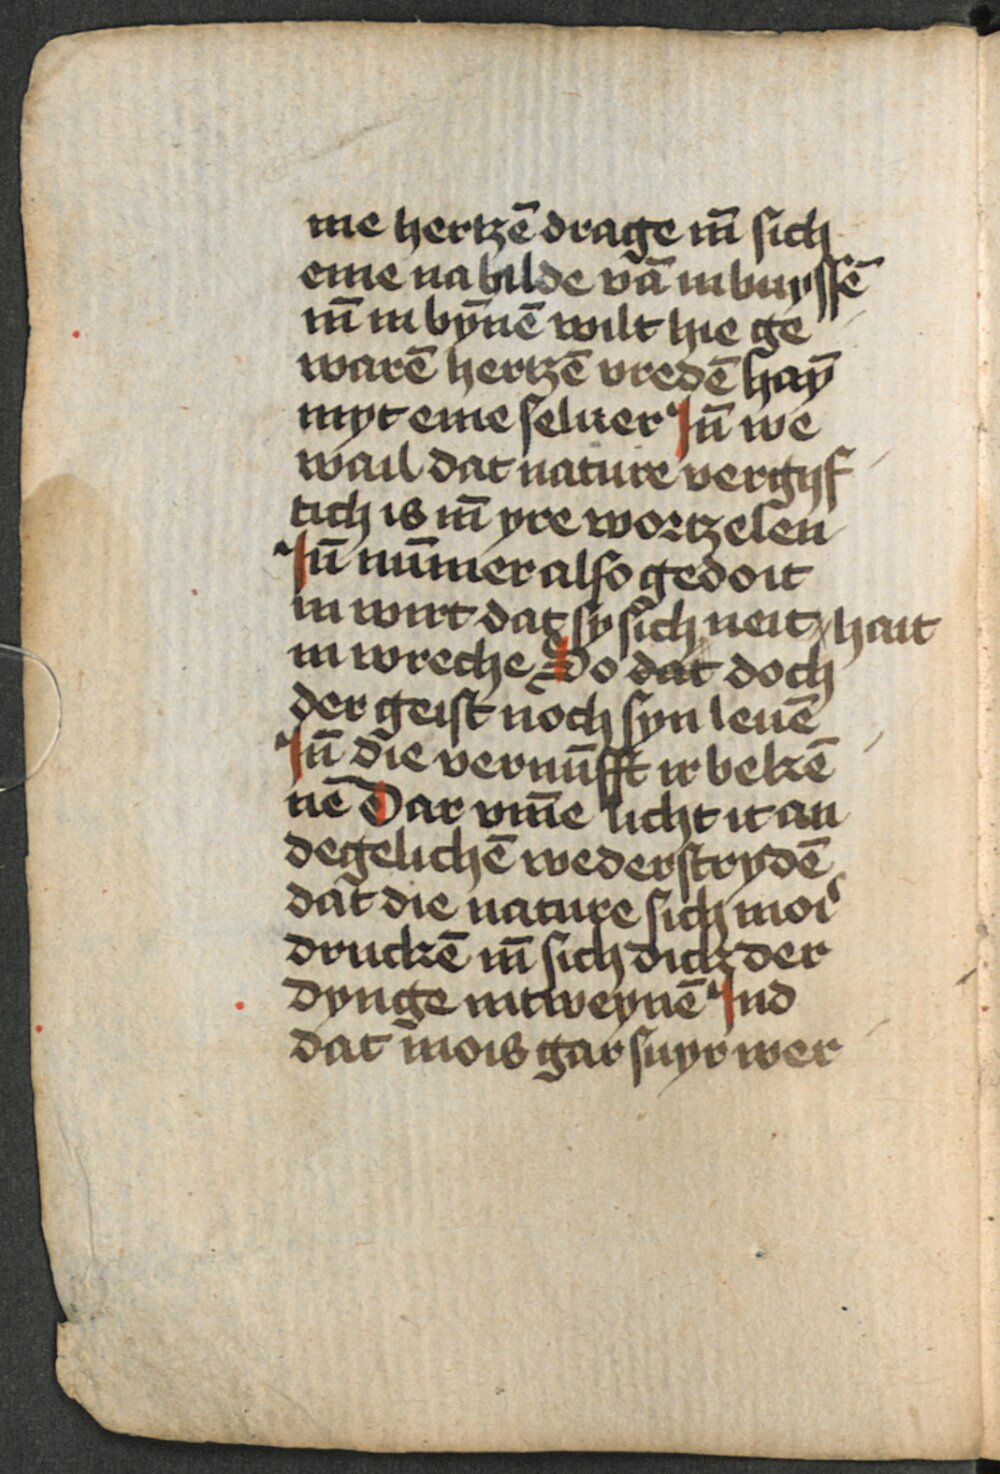 me hertzē drage in̄ sich
eme na bilde vā in buyssē
in̄ in bȳnē wilt hie ge
warē hertzē vredē haȳ
myt eme seluer In̄ we
wail dat nature vergyf
tich is in̄ yre wortzelen
In̄ nūmer also gedoit
in wirt dat sy sich neit hait
in wreche Do dat doch
der geist noch syn leuē
In̄ die vernūfft ir bekē
nē Dar vm̄e licht it an
degelichē wederstrydē
dat die nature sich mois
druckē in̄ sich dick der
dynge intweynē Ind
dat mois gar suyr wer